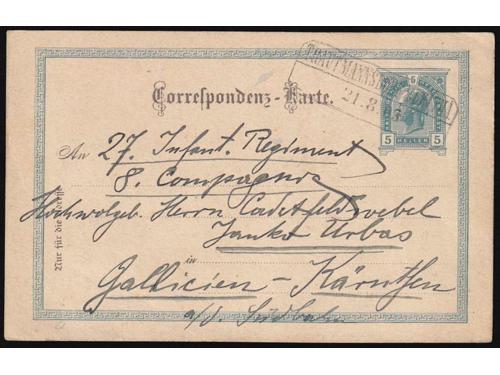 TRAUTMANNSDORF
21.8.
5
5 HELLER 5
Correspondenz-Karte.
An 27. Infant. Regiment
8. Compagnie
Hochwolgeb. Herrn Cadetfeldwebel
Janko Urbas
in
Gallicien - Kärnthen
a/d. Südbahn
Nur für die Adresse